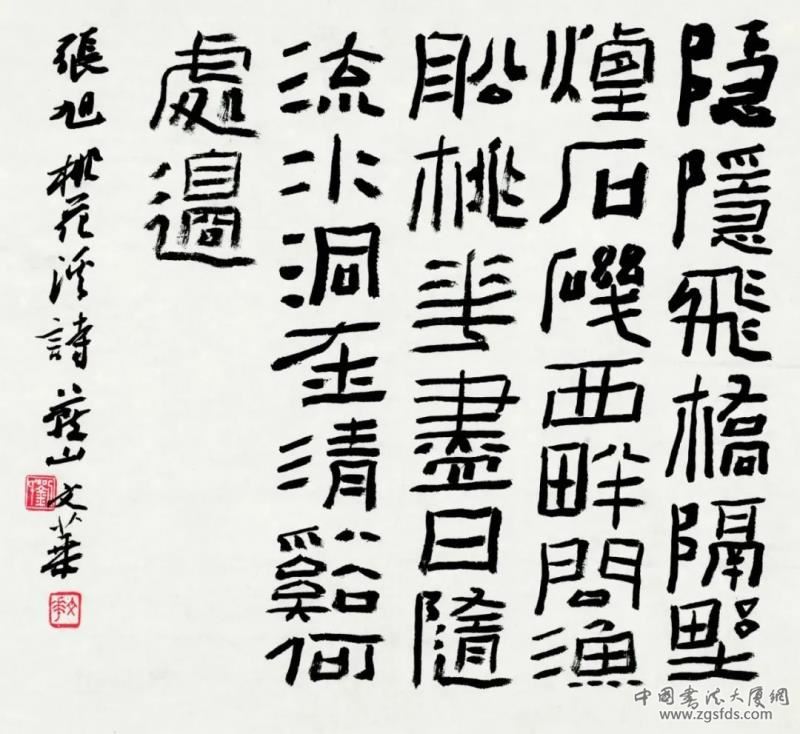 隐隱飛橋隔野
煙石磯西畔問漁
舩桃華盡日隨
流水洞在清谿何
處邊
張旭桃花溪詩 山文華
劉
文華
中国书法大厦网
www.zgsfds.com